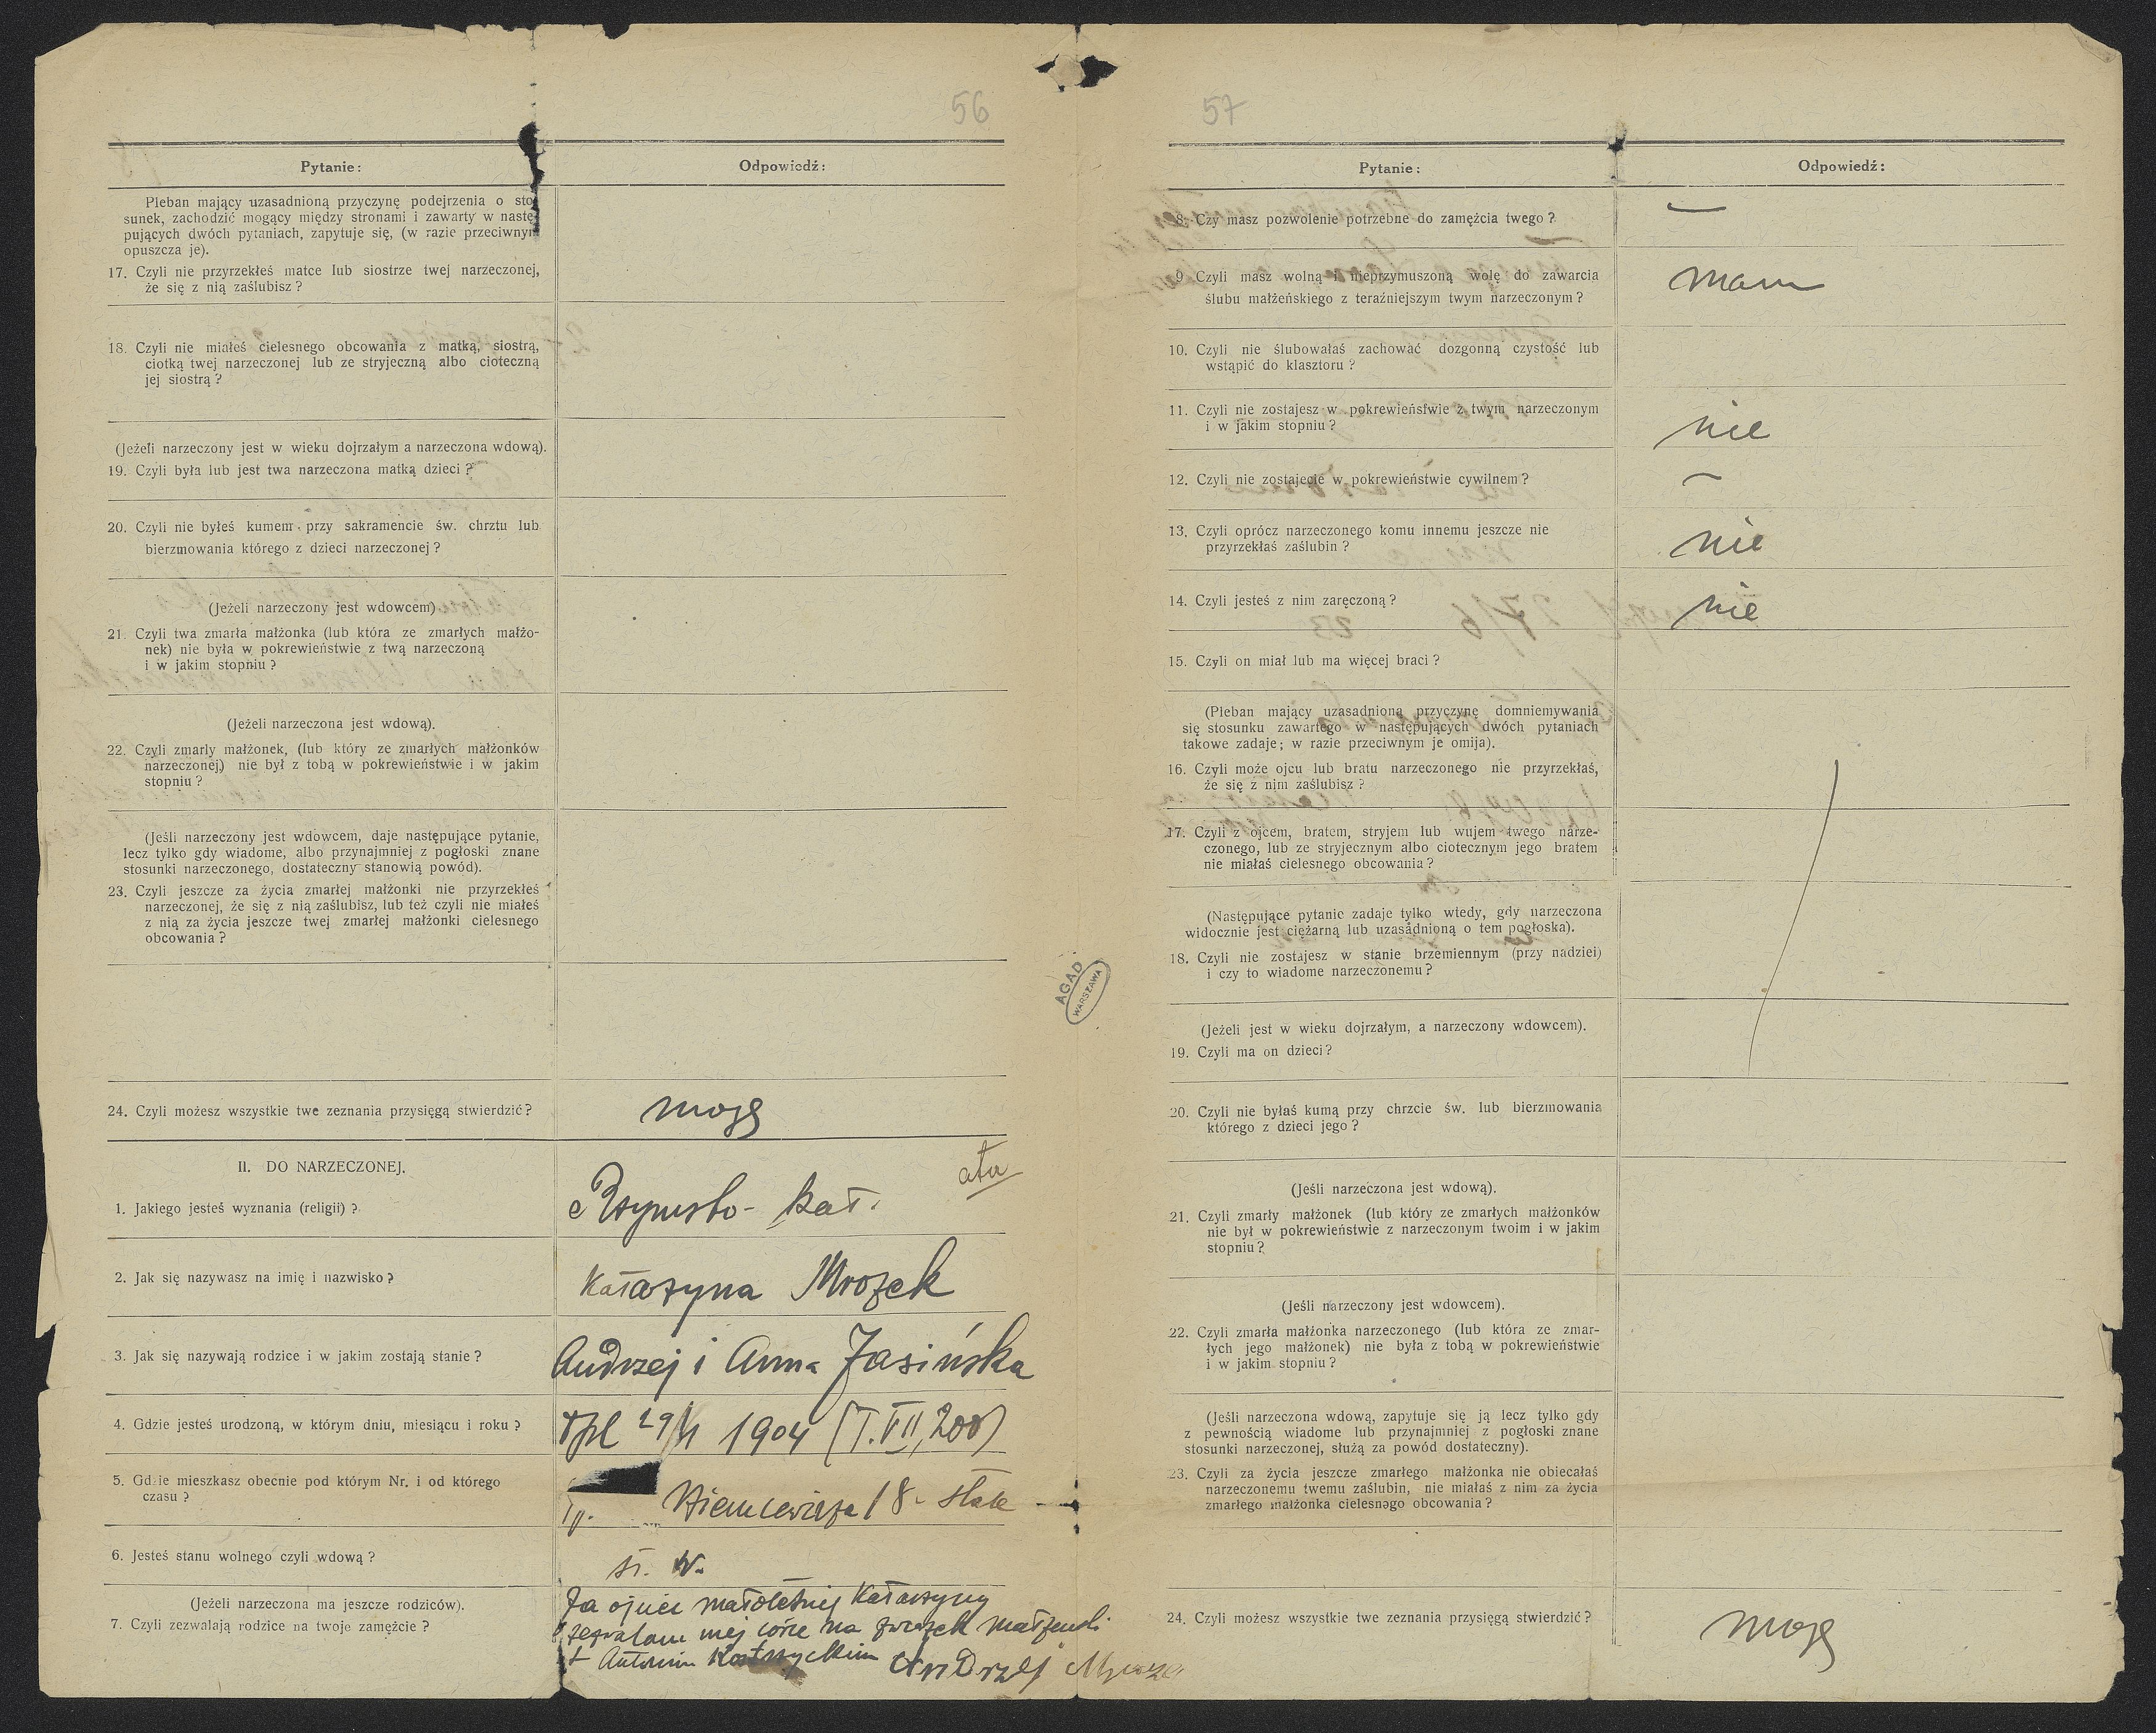 56
Pytanie:
Odpowiedź:
Pleban mający uzasadnioną przyczynę podejrzenia o sto
sunek, zachodzić mogący między stronami i zawarty w nastę
pujących dwóch pytaniach, zapytuje się, (w razie przeciwnym
opuszcza je).
17. Czyli nie przyrzekłeś matce lub siostrze twej narzeczonej,
że się z nią zaślubisz?
18. Czyli nie miałeś cielesnego obcowania z matką, siostrą,
ciotką twej narzeczonej lub ze stryjeczną albo cioteczną
jej siostrą?
(Jeżeli narzeczony jest w wieku dojrzałym a narzeczona wdową).
19. Czyli była lub jest twa narzeczona matką dzieci?
20. Czyli nie byłeś kumem przy sakramencie św. chrztu lub
bierzmowania którego z dzieci narzeczonej?
(Jeżeli narzeczony jest wdowcem)
21. Czyli twa zmarła małżonka (lub która ze zmarłych małżo-
nek) nie była w pokrewieństwie z twą narzeczoną
i w jakim stopniu?
(Jeżeli narzeczona jest wdową).
22. Czyli zmarły małżonek, (lub który ze zmarłych małżonków
narzeczonej) nie był z tobą w pokrewieństwie i w jakim
stopniu?
(Jeśli narzeczony jest wdowcem, daje następujące pytanie,
lecz tylko gdy wiadome, albo przynajmniej z pogłoski znane
stosunki narzeczonego, dostateczny stanowią powód).
23. Czyli jeszcze za życia zmarłej małżonki nie przyrzekłeś
narzeczonej, że się z nią zaślubisz, lub też czyli nie miałeś
z nią za życia jeszcze twej zmarłej małżonki cielesnego
obcowania?
24. Czyli możesz wszystkie twe zeznania przysięgą stwierdzić?
mogę
II. DO NARZECZONEJ.
1. Jakiego jesteś wyznania (religii)?
Rzymsko-kat.
2. Jak się nazywasz na imię i nazwisko?
Katarzyna Mrozek
3. Jak się nazywają rodzice i w jakim zostają stanie?
Andrzej i Anna Jasińska
4. Gdzie jesteś urodzoną, w którym dniu, miesiącu i roku?
1904 (T. VII, 200)
5. Gdzie mieszkasz obecnie pod którym Nr. i od którego
czasu?
Niemcewicza 18 - stale
6. Jesteś stanu wolnego czyli wdową?
st. w.
(Jeżeli narzeczona ma jeszcze rodziców).
7. Czyli zezwalają rodzice na twoje zamęźcie?
Ja ojciec małoletniej Katarzyny
zezwalam mej córce na związek małżeński
z Antonim Kostrzyckim Andrzej
AGAD
WARSZAWA
57
Pytanie:
Odpowiedź:
8. Czy masz pozwolenie potrzebne do zamęźcia twego?
—
9 Czyli masz wolną i nieprzymuszoną wolę do zawarcia
ślubu małżeńskiego z teraźniejszym twym narzeczonym?
mam
10. Czyli nie ślubowałaś zachować dozgonną czystość lub
wstąpić do klasztoru?
11. Czyli nie zostajesz w pokrewieństwie z twym narzeczonym
i w jakim stopniu?
nie
12. Czyli nie zostajecie w pokrewieństwie cywilnem?
—
13. Czyli oprócz narzeczonego komu innemu jeszcze nie
przyrzekłaś zaślubin?
nie
14. Czyli jesteś z nim zaręczoną?
nie
15. Czyli on miał lub ma więcej braci?
(Pleban mający uzasadnioną przyczynę domniemywania
się stosunku zawartego w następujących dwóch pytaniach
takowe zadaje; w razie przeciwnym je omija).
16. Czyli może ojcu lub bratu narzeczonego nie przyrzekłaś,
że się z nim zaślubisz?
17. Czyli z ojcem, bratem, stryjem lub wujem twego narze-
czonego, lub ze stryjecznym albo ciotecznym jego bratem
nie miałaś cielesnego obcowania?
(Następujące pytanie zadaje tylko wtedy, gdy narzeczona
widocznie jest ciężarną lub uzasadnioną o tem pogłoska).
18. Czyli nie zostajesz w stanie brzemiennym (przy nadziei)
i czy to wiadome narzeczonemu?
(Jeżeli jest w wieku dojrzałym, a narzeczony wdowcem).
19. Czyli ma on dzieci?
20. Czyli nie byłaś kumą przy chrzcie św. lub bierzmowania
którego z dzieci jego?
(Jeśli narzeczona jest wdową).
21. Czyli zmarły małżonek (lub który ze zmarłych małżonków
nie był w pokrewieństwie z narzeczonym twoim i w jakim
stopniu?
(Jeśli narzeczony jest wdowcem).
22. Czyli zmarła małżonka narzeczonego (lub która ze zmar-
łych jego małżonek) nie była z tobą w pokrewieństwie
i w jakim stopniu?
(Jeśli narzeczona wdową, zapytuje się ją lecz tylko gdy
z pewnością wiadome lub przynajmniej z pogłoski znane
stosunki narzeczonej, służą za powód dostateczny).
23. Czyli za życia jeszcze zmarłego małżonka nie obiecałaś
narzeczonemu twemu zaślubin, nie miałaś z nim za życia
zmarłego małżonka cielesnego obcowania?
24. Czyli możesz wszystkie twe zeznania przysięgą stwierdzić?
mogę